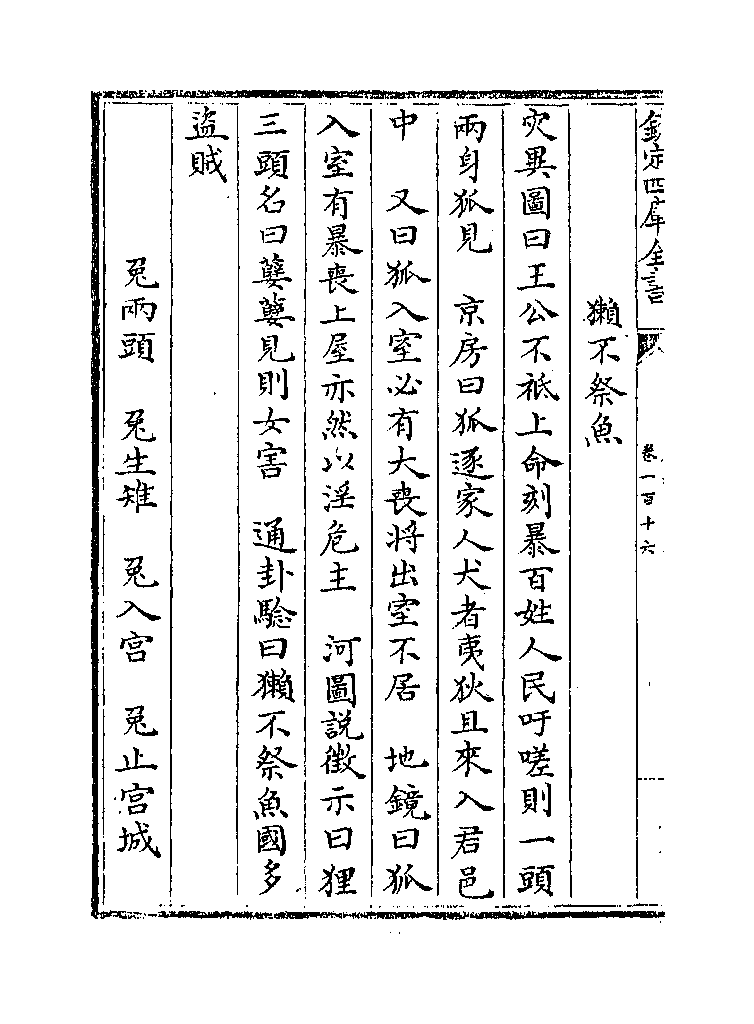 欽定四庫全書
卷一百十六
獺不祭魚
灾異圖曰王公不祗上命刻暴百姓人民吁嗟則一頭
兩身狐見　京房曰狐逐家人犬者夷狄且來入君邑
中　又曰狐入室必有大喪將出室不居　地鏡曰狐
入室有暴喪上屋亦然以淫危主　河圖説徵示曰狸
三頭名曰孽孽見則女害　通卦驗曰獺不祭魚國多
盜賊
兎兩頭　兎生雉　兎入宫　兎止宫城